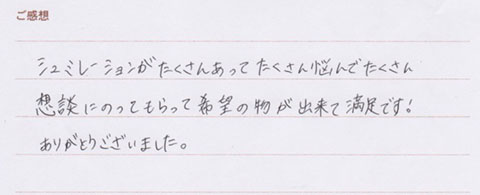 ご感想
シュミレーションがたくさんあってたくさん悩んでたくさん
想談にのってもらって希望の物が出来て満足です!
ありがとうございました。